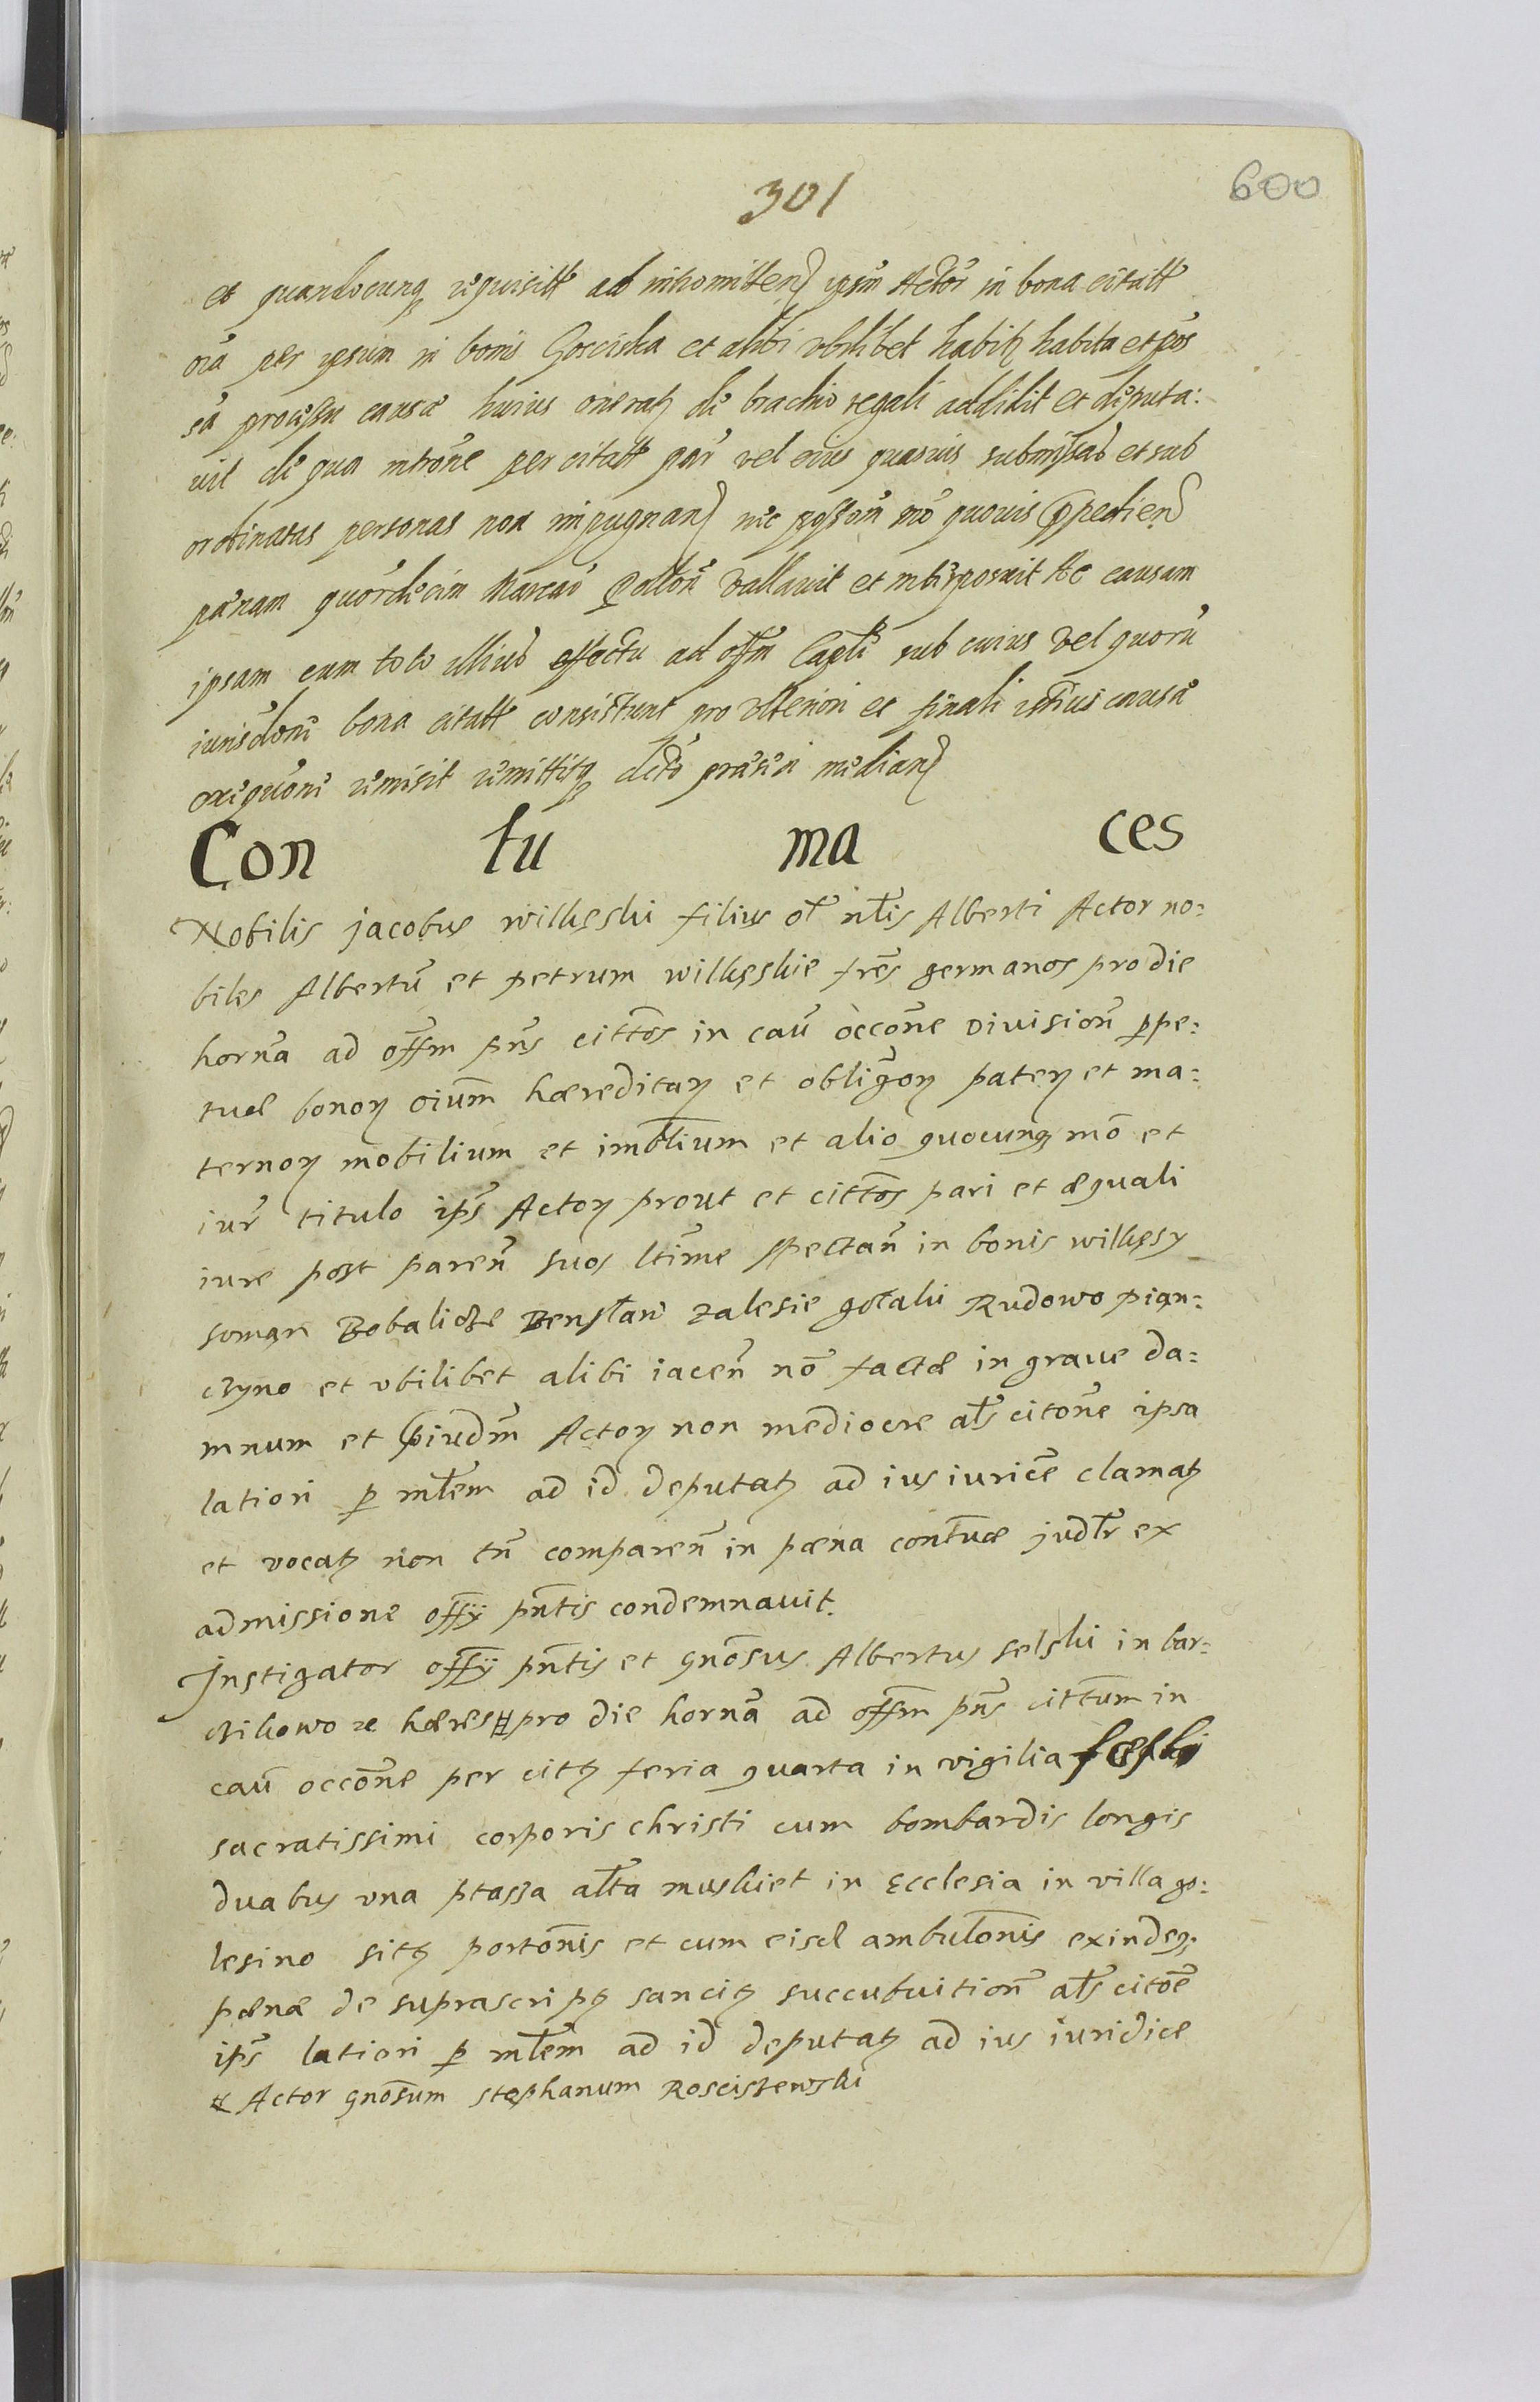 301
600
et quandocunq requisitt ad intromitten ipsm Actor in bona citatt
oia per ipsum in bonis Gosciska et alibi ubilibet habit habita et pos
sa processu causæ huius onerat de brachio regali addidit et deputa:
vit de qua introne per citatt par vel eius quasvis submissas et sub
ordinatas personas non impugnan nec possom mo quovis ppedien
pænam quordecim Marcar Pollon vallavit et interposuit Ac causam
ipsam cum toto illius effectu ad offm Captle sub cuius vel quoru
iurisdoni bona citatt consistunt pro ulteriori et finali istius causæ
exequone remisit remittitq decto præsen median
Con tu ma ces
Nobilis jacobus willkęski filius ol nlis Alberti Actor no:
biles Albertu et petrum willkęskie fres germanos pro die
horna ad offm pns cittos in cau occone Division ppe:
tuæ bonor oium hæreditar et obligor pater et ma:
ternor mobilium et imbtlium et alio quocunq mo et
iur titulo ips Actor prout et cittos pari et æquali
iure post paren suos ltime spectan in bonis willkęsy
soman Bobalicze Zalesie gotalki Rudowo pian:
czyno et vbilibet alibi iacen no factæ in graue da:
mnum et piudm Actor non mediocre als citone ipsa
latiori p mlem ad id deputat ad ius iurice clamat
et vocat non tn comparen in pæna contuæ judlr ex
admissione offy pntis condemnauit.
Instigator offy pntis et gnosus Albertus selski in bar:
czikowo ze hæres # pro die horna ad offm pns cittum in
cau occone per citt feria quarta in vigilia fæsti
sacratissimi corporis christi cum bombardis longis
duabus vna ptassa alta muskiet in Ecclesia in villa go:
lesino sitt portonis et cum eisd ambulonis exindeq
pænæ de suprascript sancit succubuition als citoe
ips latiori p mlem ad id deputat ad ius iuridice
# Actor gnosum stephanum Rosciszewski